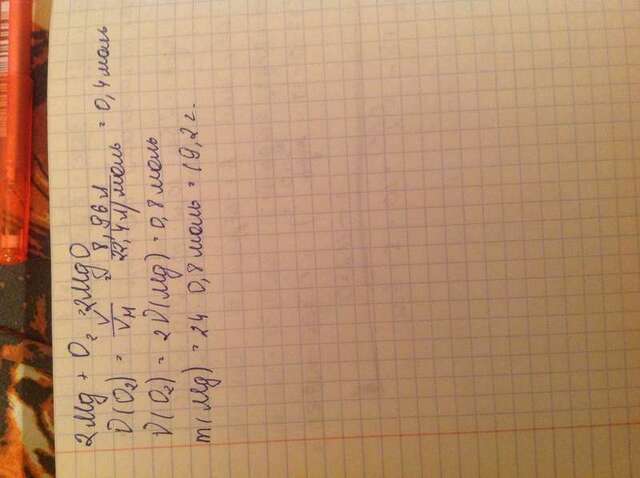 2Mg + O₂ = 2MgO
ν(O₂) = V/Vм = 8,96 л/22,4 л/моль = 0,4 моль
ν(O₂) = 2ν(Mg) = 0,8 моль
m(Mg) = 24 0,8 моль = 19,2 г.